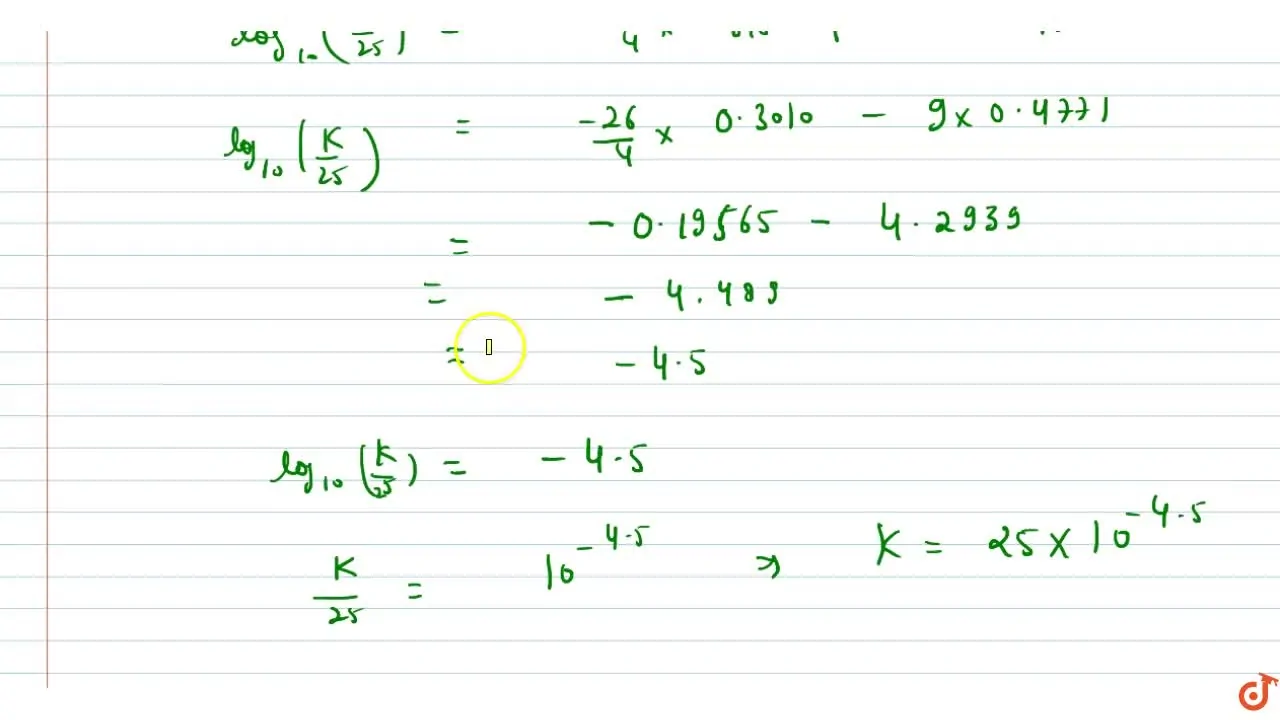 log₁₀ ( /25) =
log₁₀ (K/25) = -26/4 × 0.3010 - 9 × 0.4771
= - 0.19565 - 4.2939
= - 4.489
= - 4.5
log₁₀ (K/25) = - 4.5
K/25 = 10^-4.5 ⇒ K = 25 × 10^-4.5